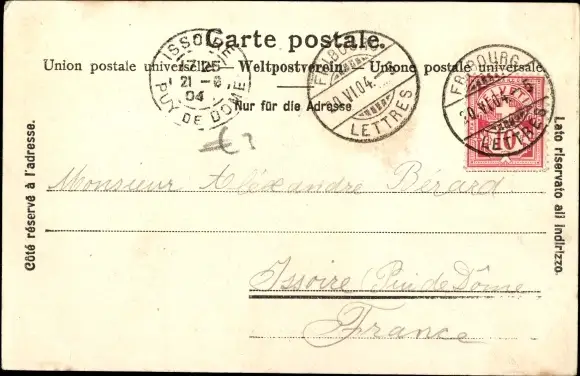 Carte postale.
Union postale universelle. — Weltpostverein. — Unione postale universale.
Nur für die Adresse
Côté réservé à l'adresse.
Lato riservato all'indirizzo.
ISSOIRE
21 - 6
04
PUY DE DOME
FRIBOURG
20.VI.04.
LETTRES
FRIBOURG
20.VI.04.
LETTRES
HELVETIA
10
Monsieur Aléxandre Bérard
Issoire (Puy de Dôme
France